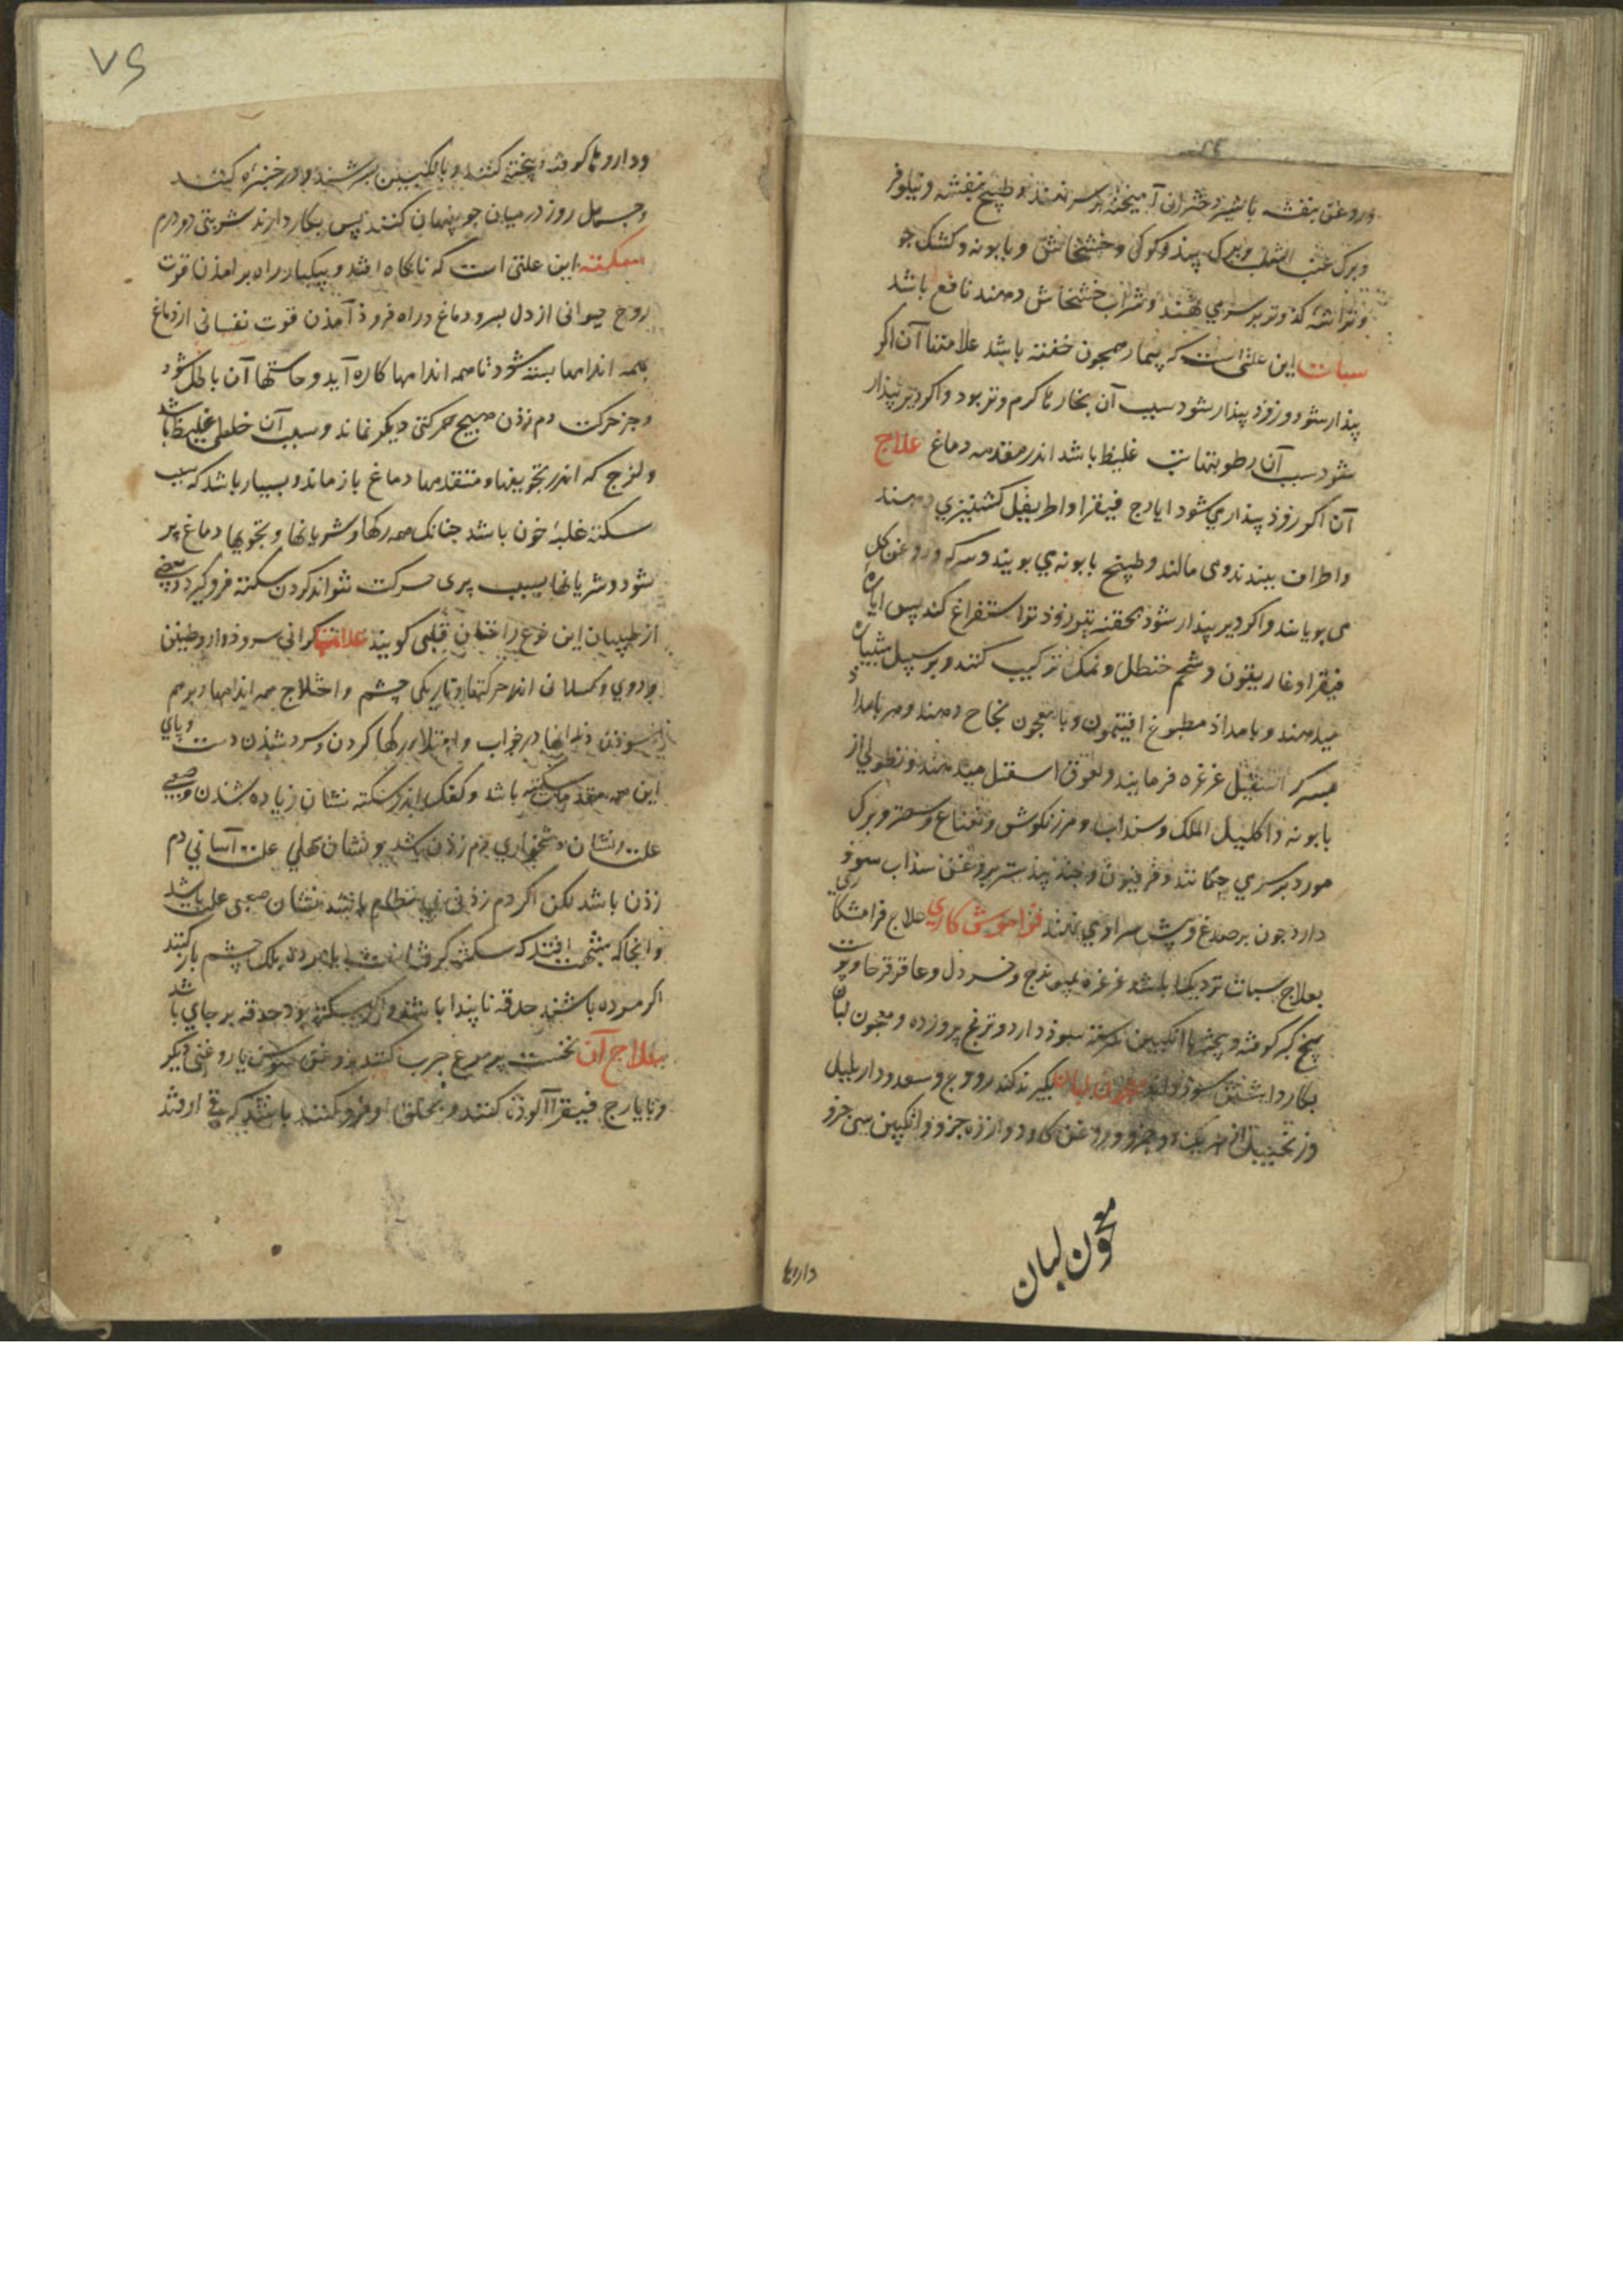 وروغن بنفشه باشیر دختران آمیخته بر سر نهند و طبیخ بنفشه و نیلوفر
و برک عنب الثعلب و برک بیذ و کوک و خشخاش و بابونه و کشک جو
و تراشه کدو تر بر سر می نهند و شراب خشخاش دهند نافع باشد
سبات این علتی است که بیمار همچون خفته باشد علامتها آن اکر
بیذار شود و زوذ بیذار شود سبب آن بخارها کرم و تر بود و اکر دیر بیذار
شود سبب آن رطوبتهای غلیظ باشد اندر مقدمه دماغ علاج
آن اکر زوذ بیذار می شود ایارج فیقرا و اطریفل کشنیزی دهند
و اطراف ببندند و می مالند و طبیخ بابونه می بویند و سرکه و روغن کل
می بویانند و اکر دیر بیذار شود بحقنه تیز زوذ تر استفراغ کند پس ایاره
فیقرا و غاریقون و شحم حنظل و نمک ترکیب کنند و بر سبیل شبیاره
میدهند و بامداذ مطبوخ افتیمون و یا معجون نجاح دهند و هر بامداذ
بسرکه اسقیل غرغره فرمایند و لعوق اسقیل میدهند و نطولی از
بابونه و اکلیل الملک و سنداب و مرزنکوش و نعناع و سعتر و برک
مورد بر سر می چکانند و فرفیون و جند بیذستر بروغن سذاب سوذ
دارد چون بر صدغ و پیش سر او می نهند فراموش کاری علاج فرامشکاری
بعلاج سبات نزدیک باشد غرغره بمیویزج و خردل و عاقرقرحا و پوست
بیخ کبر کوفته و بیخته با انکبین سرشته سوذ دارد و ترنج پروزده و معجون لبان
بکار داشتن سوذ دارد معجون لبان بکیرند کندر و وج و سعد و دار پلپل
و زنجبیل از هر یک دو جزو و روغن کاو دوازده جزو و انکبین سی جزو
معجون لبان
داروها
٧۶
و داروها کوفته و بیخته کنند و بانکبین بسرشند و در خنبره کنند
و چهل روز در میان جو پنهان کنند پس بکار دارند شربتی دو درم
سکته این علتی است که ناکاه افتد و بیکبار راه بر امذن قوت
روح حیوانی از دل بسر و دماغ و راه فروذ آمذن قوت نفسانی از دماغ
بهمه اندامها بسته شود تا همه اندامها کاره آید و حاستها آن باطل شود
و جز حرکت دم زذن هیچ حرکتی دیکر نماند و سبب آن خلطی غلیظ باشد
و لزج که اندر تجویفها و منتفذها دماغ باز ماند و بسیار باشد که سبب
سکته غلبه خون باشد چنانک همه رکها و شریانها و تجویها دماغ پر
شود و شریانها بسبب پری حرکت نتواند کردن سکته فرو کیرد و بعضی
از طبیبان این نوع را خناق قلبی کویند علامت کرانی سر و دوار و طنین
و دوی و کسلانی اندر حرکتها و تاریکی چشم و اختلاج همه اندامها و بر هم
سوذن دندانها در خواب و امتلا رکها کردن و سرد شذن دست و پای
این همه مقدمات سکته باشد و کفک اندر سکته نشان زیاده شذن و صعبی
علت و نشان دشخواری دم زذن باشد و نشان سهلی علت آسانی دم
زذن باشد لکن اکر دم زذن بی نظام باشد نشان صعبی علت باشد
و انجا که شبهت افتد که سکته کرفته است یا مرده پلک چشم باز کنند
اکر مرده باشد حدقه ناپیدا باشد و اکر سکته بود حدقه بر جای باشد
علاج آن نخست پر مرغ چرب کنند بروغن سوسن یا روغنی دیکر
و با یارج فیقرا آلوذه کنند و بحلق او فرو کنند باشد که قی افتد